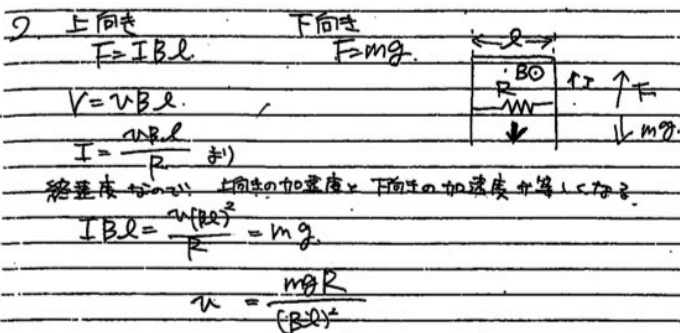 2 上向き 下向き
F=IBl. F=mg.
l
B⊙
R
↑I
F
mg.
V=vBl.
I=\frac{vBl}{R} より
終速度なので 上向きの加速度と下向きの加速度が等しくなる.
IBl=\frac{v(Bl)^2}{R}=mg.
v=\frac{mgR}{(Bl)^2}